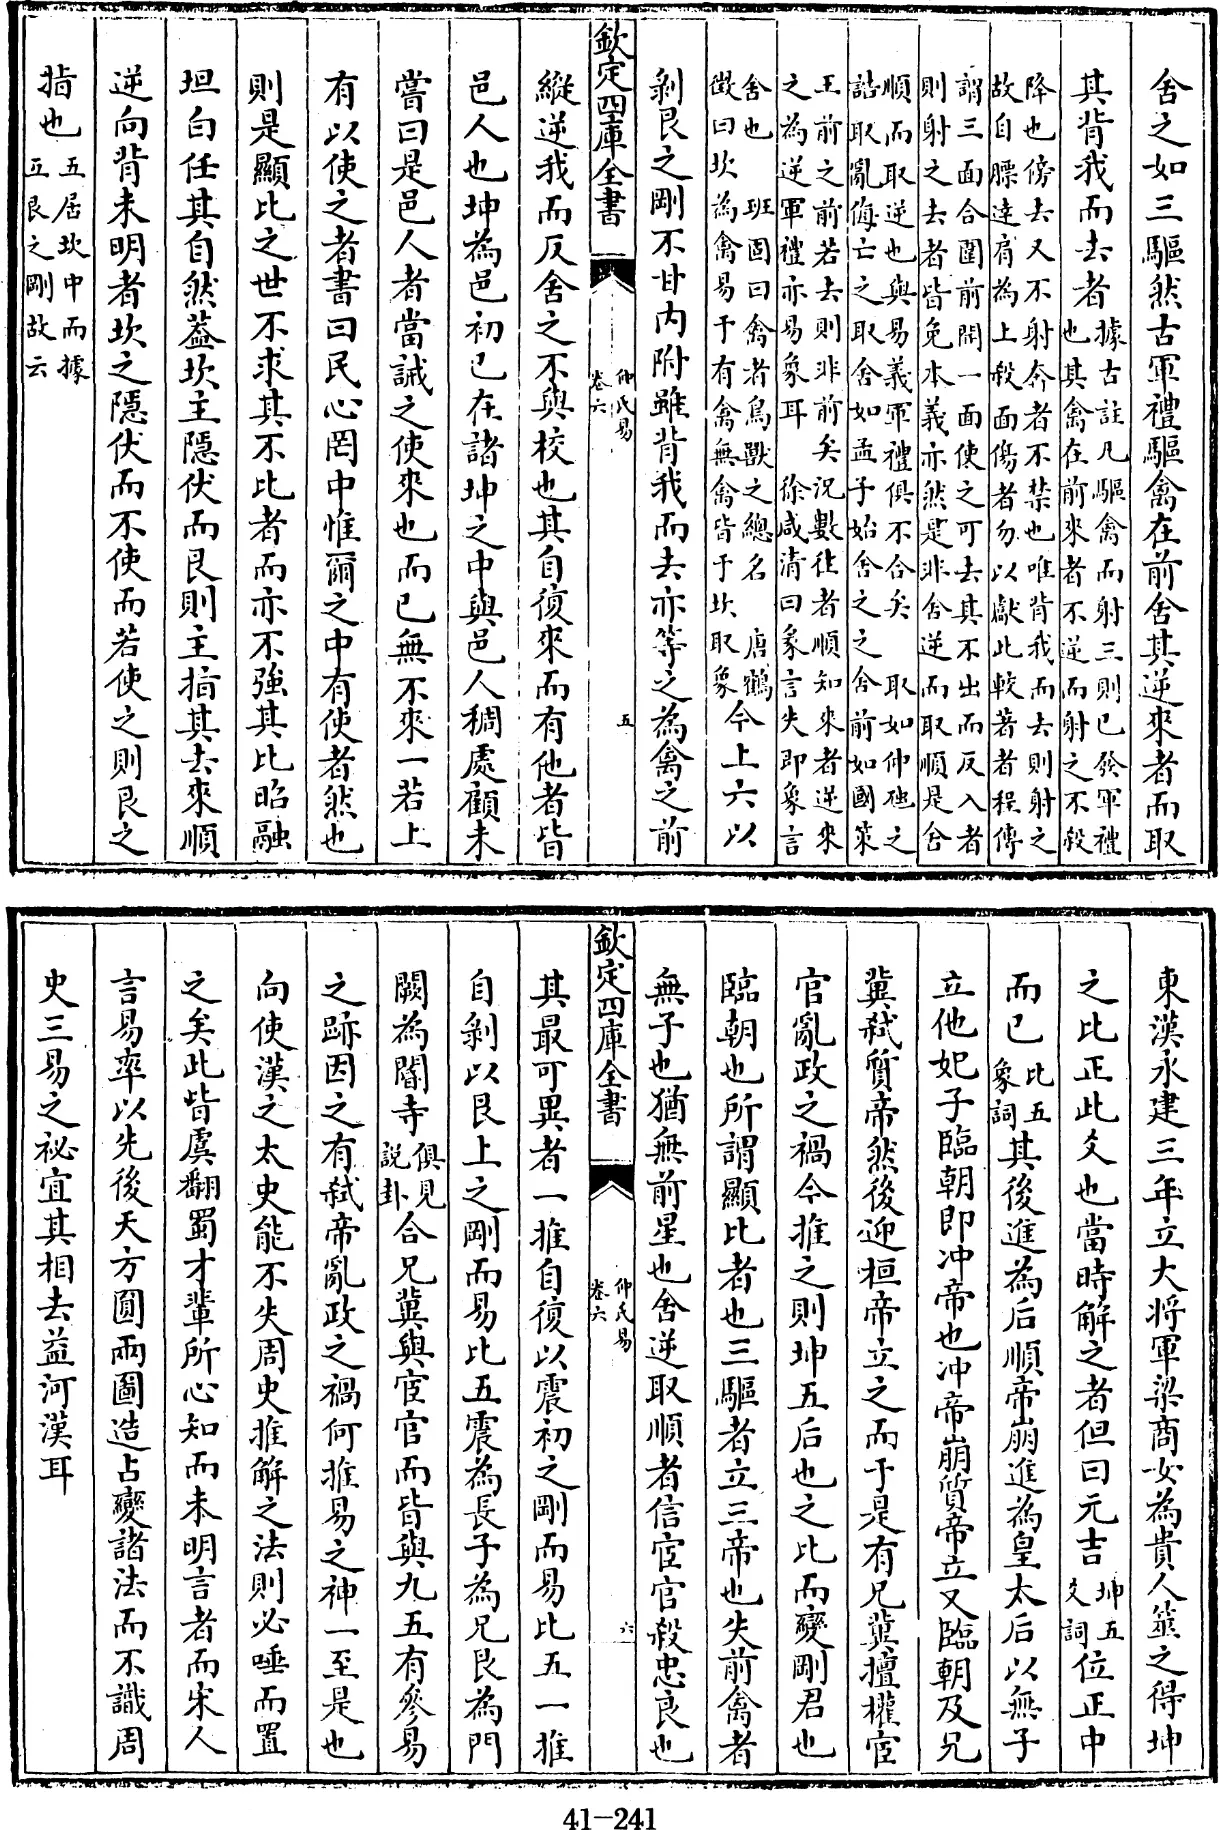 舍之如三驅然古軍禮驅禽在前舍其逆來者而取
其背我而去者據古註凡驅禽而射三則已發軍禮
也其禽在前來者不逆而射之不殺
降也傍去又不射奔者不禁也唯背我而去則射之
故自膘達肩為上殺面傷者勿以獻此較著者程傳
謂三面合圍前開一面使之可去其不出而反入者
則射之去者皆免本義亦然是非舍逆而取順是舍
順而取逆也與易義軍禮俱不合矣 取如仲虺之
誥取亂侮亡之取舍如孟子始舍之之舍前如國策
王前之前若去則非前矣況數往者順知來者逆來
之為逆軍禮亦易象耳 徐咸清曰象言失即象言
舍也 班固曰禽者鳥獸之總名 唐鶴
徵曰坎為禽易于有禽無禽皆于坎取象今上六以
剝艮之剛不甘內附雖背我而去亦等之為禽之前
欽定四庫全書 仲氏易 卷六 五
縱逆我而反舍之不與校也其自復來而有他者皆
邑人也坤為邑初已在諸坤之中與邑人稠處顧未
嘗曰是邑人者當誡之使來也而已無不來一若上
有以使之者書曰民心罔中惟爾之中有使者然也
則是顯比之世不求其不比者而亦不強其比昭融
坦白任其自然葢坎主隱伏而艮則主指其去來順
逆向背未明者坎之隱伏而不使而若使之則艮之
指也五居坎中而據
互艮之剛故云
東漢永建三年立大將軍梁商女為貴人筮之得坤
之比正此爻也當時解之者但曰元吉坤五
爻詞位正中
而已比五
象詞其後進為后順帝崩進為皇太后以無子
立他妃子臨朝即冲帝也冲帝崩質帝立又臨朝及兄
冀弒質帝然後迎桓帝立之而于是有兄冀擅權宦
官亂政之禍今推之則坤五后也之比而變剛君也
臨朝也所謂顯比者也三驅者立三帝也失前禽者
無子也猶無前星也舍逆取順者信宦官殺忠良也
欽定四庫全書 仲氏易 卷六 六
其最可異者一推自復以震初之剛而易比五一推
自剝以艮上之剛而易比五震為長子為兄艮為門
闕為閽寺俱見
説卦合兄冀與宦官而皆與九五有參易
之跡因之有弒帝亂政之禍何推易之神一至是也
向使漢之太史能不失周史推解之法則必唾而置
之矣此皆虞翻蜀才輩所心知而未明言者而宋人
言易率以先後天方圓兩圖造占變諸法而不識周
史三易之祕宜其相去益河漢耳
41-241